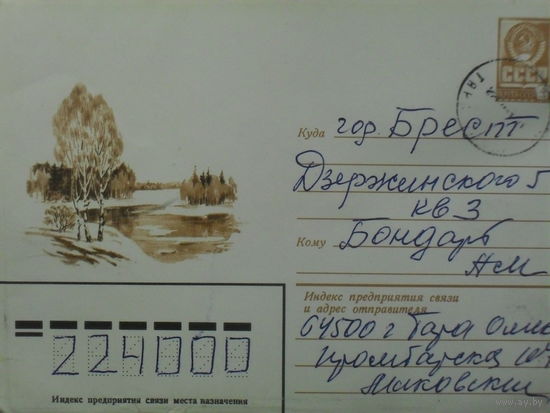 СССР
Куда год. Брест
Дзержинского 5
кв 3
Кому Бондарь
АМ
Индекс предприятия связи
и адрес отправителя
64500 г Тара
224000
Индекс предприятия связи места назначения
www.ay.by